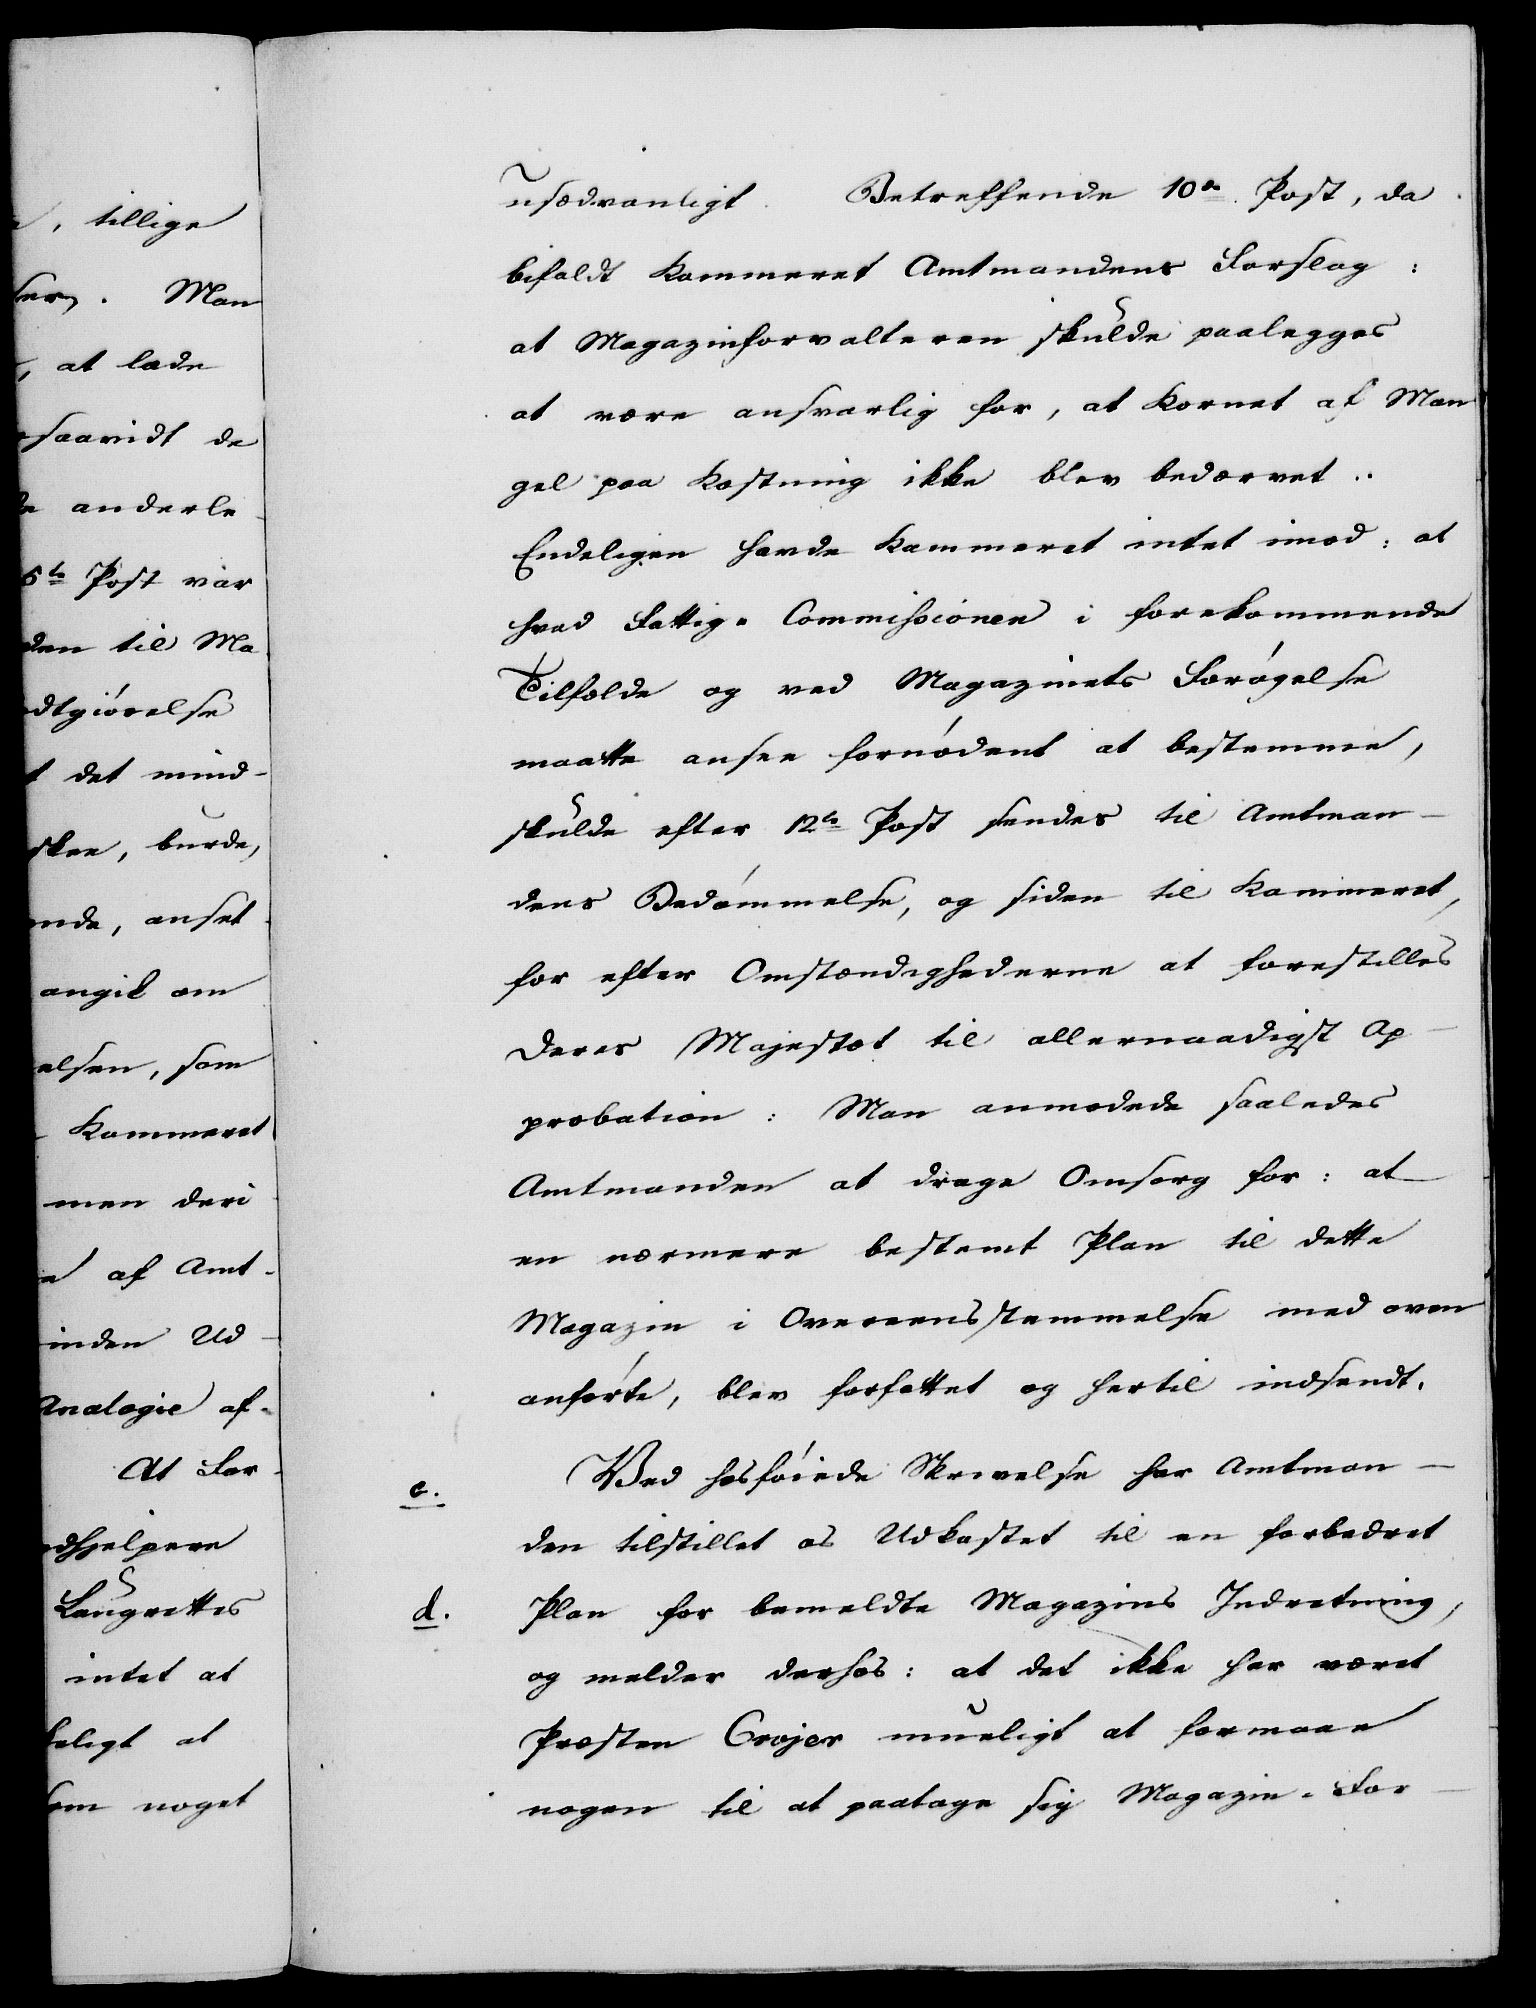 , tillige
ser. Man
, at lade
saavidt de
de anderle
6te Post var
den til Ma
dtgiórelse
t det mind-
skee, burde,
ende, anset
angik om
elsen, som
Kammeret
men deri
af Amt-
inden Ud-
Analogie af-
At For-
dhjelpere
Laugrettes
intet at
keligt at
som noget
usædvanligt. Betreffende 10de Post, da
bifaldt Kammeret Amtmandens Forslag:
at Magazinforvalteren skulde paalegges
at være ansvarlig for, at Kornet af Man
gel paa Kastning ikke blev bedærvet..
Endeligen havde Kammeret intet imod: at
hvad Fattig-Commissionen i forekommende
Tilfælde og ved Magazinets Forógelse
maatte ansee fornódent at bestemme,
skulde efter 12te Post sendes til Amtman-
dens Bedómmelse, og siden til Kammeret,
for efter Omstændighederne at forestilles
Deres Majestæt til allernaadigst Ap-
probation: Man anmodede saaledes
Amtmanden at drage Omsorg for: at
en nærmere bestemt Plan til dette
Magazin i Overeensstemmelse med oven
anfórte, blev forfattet og hertil indsendt.
c. Ved hosfóiede Skrivelse har Amtman-
den tilstillet os Udkastet til en forbedret
d. Plan for bemeldte Magazins Indretning,
og melder derhos: at det ikke har været
Præsten Crøjer mueligt at formaae
nogen til at paatage sig Magazin-For-